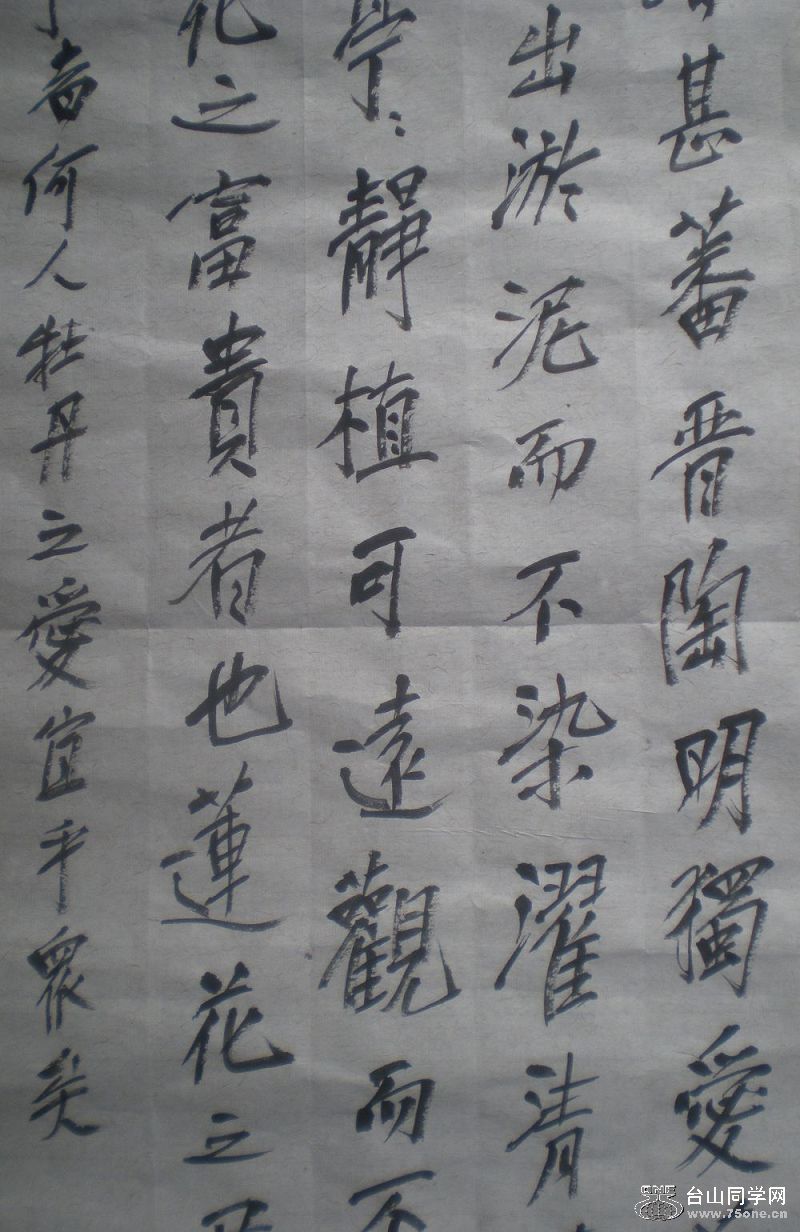 甚蕃晋陶明獨愛
出淤泥而不染濯清
亭〻靜植可遠觀而不
花之富貴者也蓮花之
者何人牡丹之愛宜乎衆矣
台山同学网
www.75one.cn